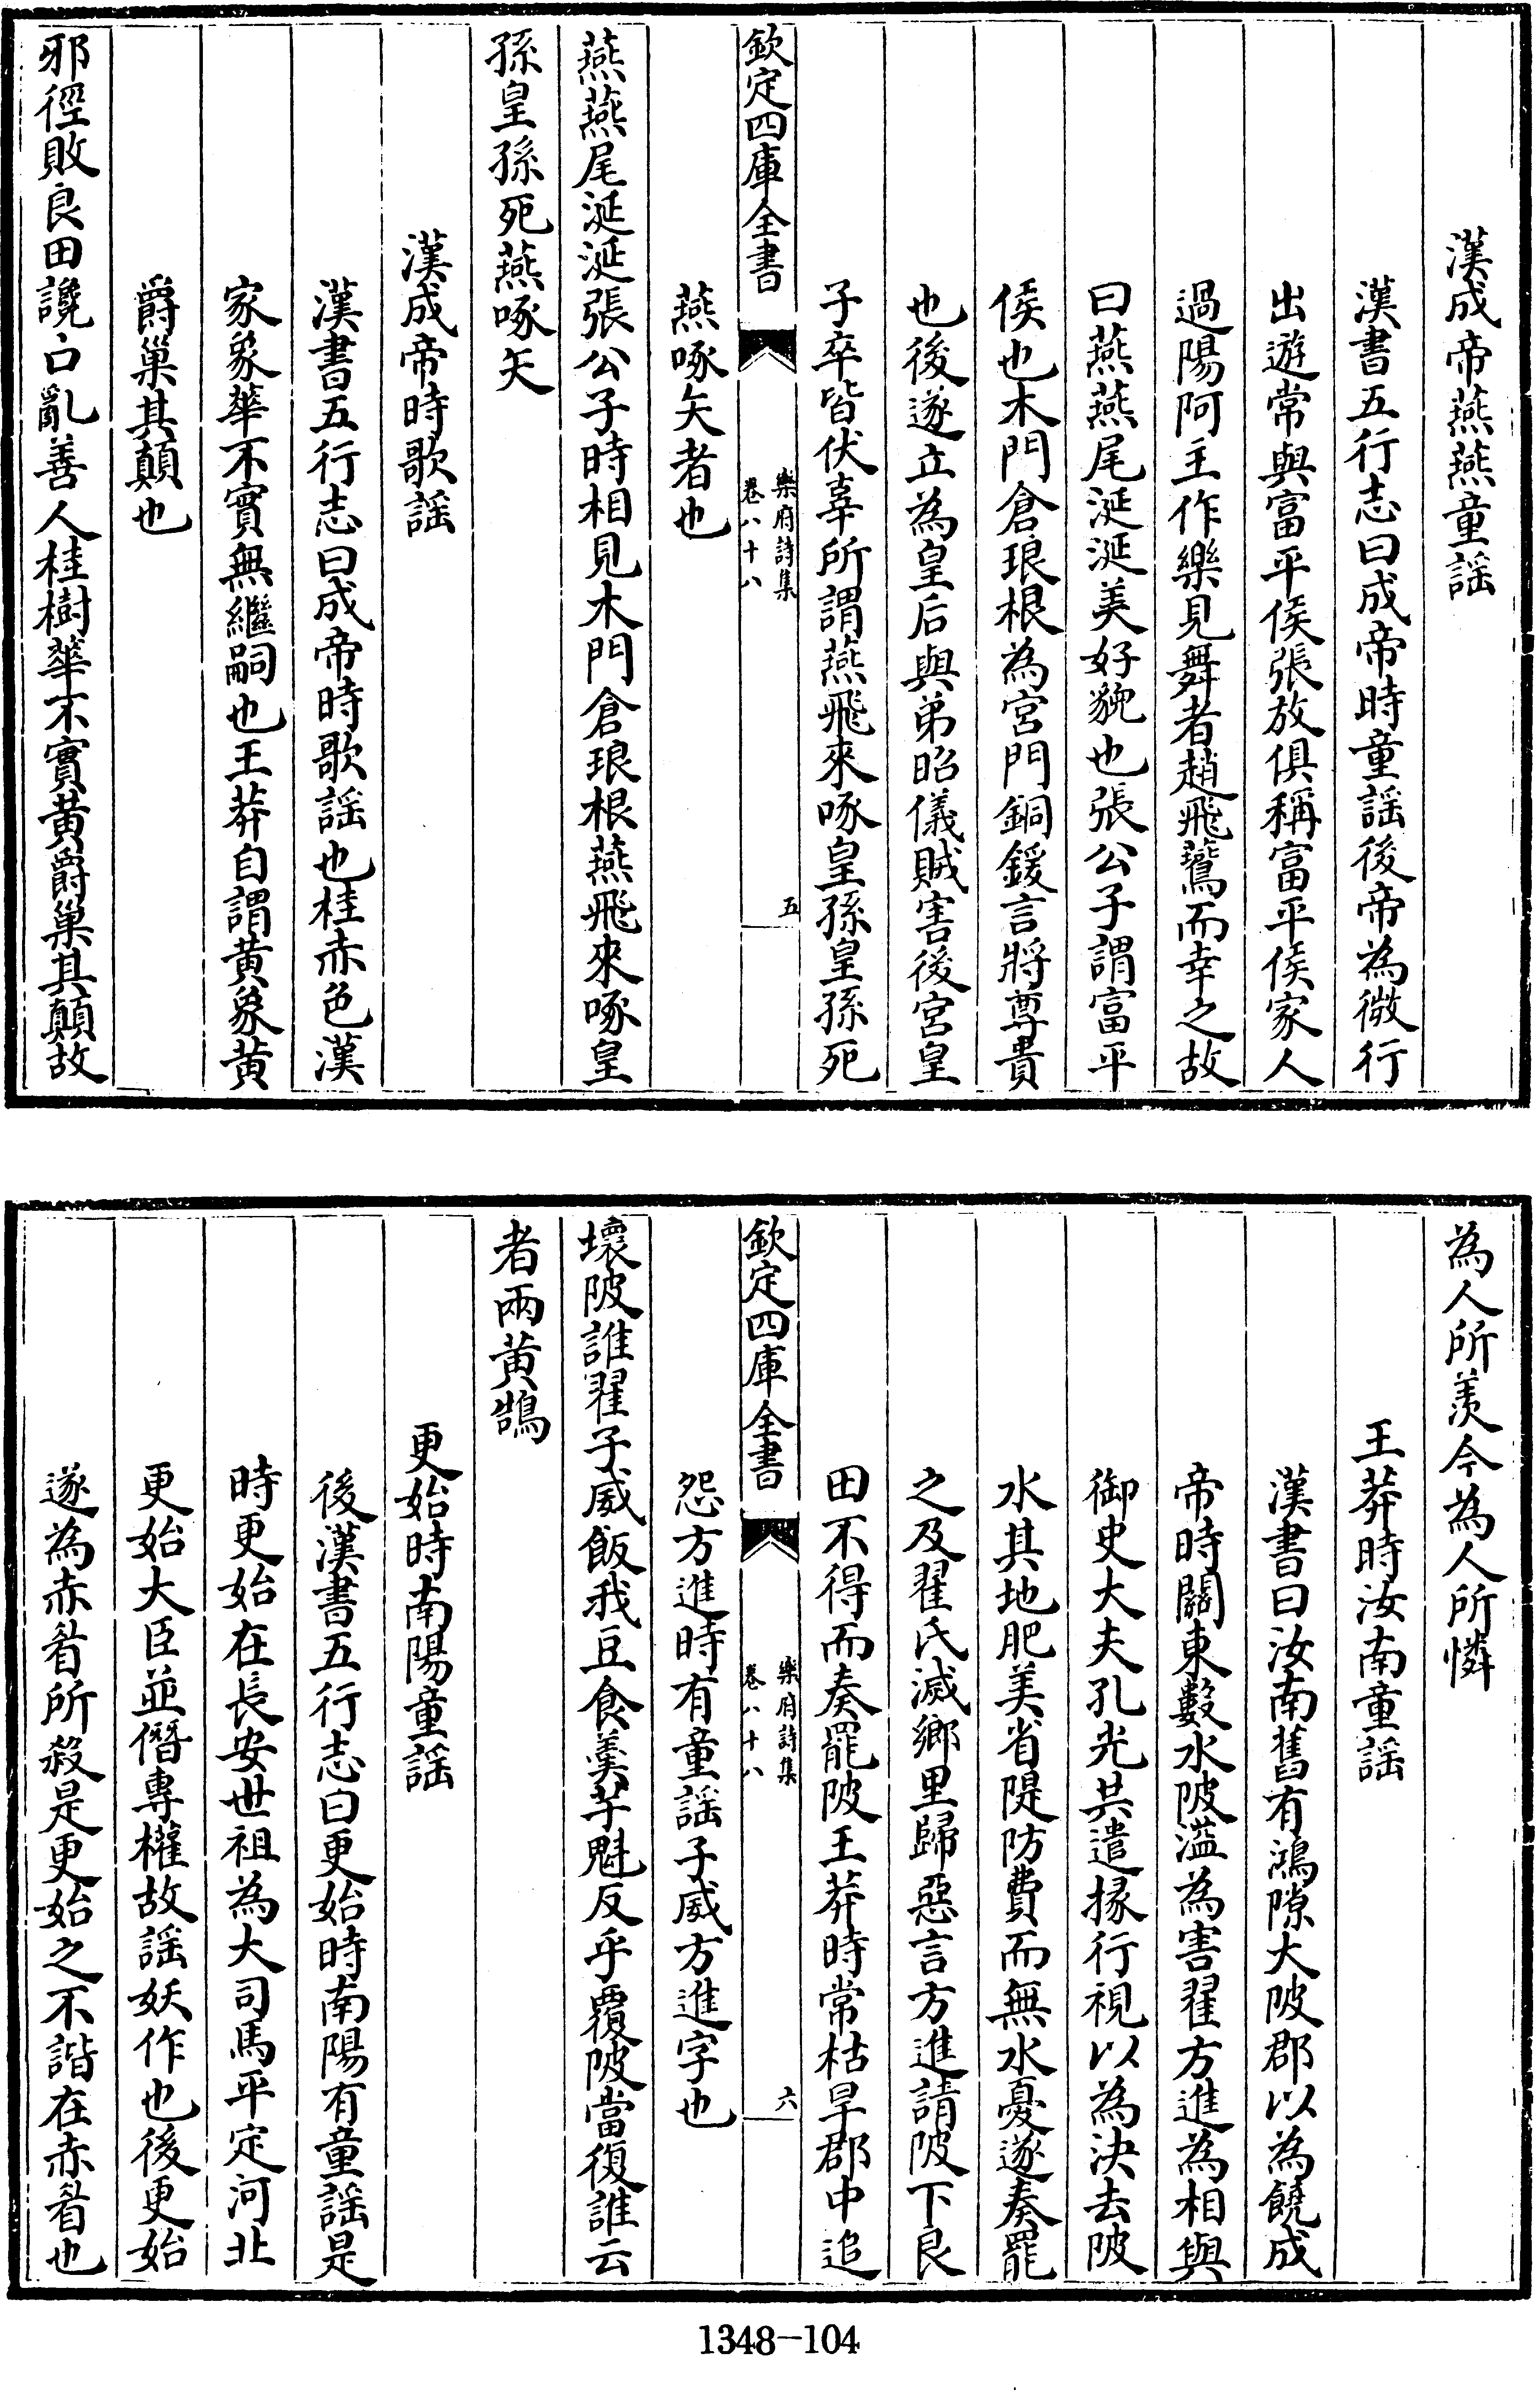 漢成帝燕燕童謡
漢書五行志曰成帝時童謡後帝為微行
出遊常與富平侯張放俱稱富平侯家人
過陽阿主作樂見舞者趙飛鷰而幸之故
曰燕燕尾涎涎美好貌也張公子謂富平
侯也木門倉琅根為宮門銅鍰言將尊貴
也後遂立為皇后與弟昭儀賊害後宮皇
子卒皆伏辜所謂燕飛來啄皇孫皇孫死
欽定四庫全書
樂府詩集
卷八十八
五
燕啄矢者也
燕燕尾涎涎張公子時相見木門倉琅根燕飛來啄皇
孫皇孫死燕啄矢
漢成帝時歌謡
漢書五行志曰成帝時歌謡也桂赤色漢
家象華不實無繼嗣也王莽自謂黃象黃
爵巢其顛也
邪徑敗良田讒口亂善人桂樹華不實黃爵巢其顛故
為人所羨今為人所憐
王莽時汝南童謡
漢書曰汝南舊有鴻隙大陂郡以為饒成
帝時關東數水陂溢為害翟方進為相與
御史大夫孔光共遣掾行視以為決去陂
水其地肥美省隄防費而無水憂遂奏罷
之及翟氏滅鄉里歸惡言方進請陂下良
田不得而奏罷陂王莽時常枯旱郡中追
欽定四庫全書
樂府詩集
卷八十八
六
怨方進時有童謡子威方進字也
壞陂誰翟子威飯我豆食羹芋魁反乎覆陂當復誰云
者兩黃鵠
更始時南陽童謡
後漢書五行志曰更始時南陽有童謡是
時更始在長安世祖為大司馬平定河北
更始大臣並僭專權故謡妖作也後更始
遂為赤眉所殺是更始之不諧在赤眉也
1348-104